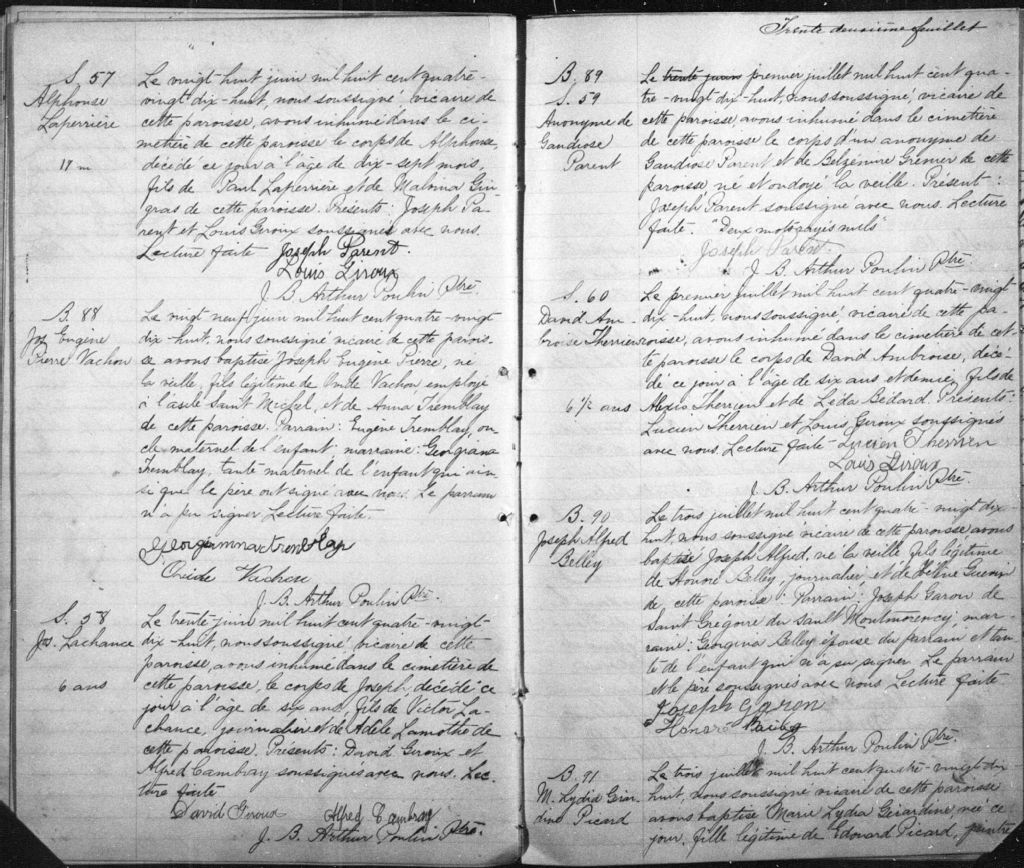 S. 57
Alphonse
Laperrière
17 m
Le vingt-huit juin mil huit cent quatre-
vingt dix-huit, nous soussigné, vicaire de
cette paroisse, avons inhumé dans le ci-
metière de cette paroisse le corps de Alphonse,
décédé ce jour à l'âge de dix-sept mois,
fils de Paul Laperrière et de Malvina Gin-
gras de cette paroisse. Présents: Joseph Pa-
rent et Louis Giroux soussignés avec nous.
Lecture faite Joseph Parent.
Louis Giroux
J. B. Arthur Poulin Ptre.
B. 88
Jos Eugène
Pierre Vachon
Le vingt neuf juin mil huit cent quatre-vingt
dix-huit, nous soussigné vicaire de cette parois-
se avons baptisé Joseph Eugène Pierre, né
la veille, fils légitime de Ovide Vachon employé
à l'asile Saint Michel, et de Anna Tremblay
de cette paroisse. Parrain: Eugène Tremblay, on-
cle maternel de l'enfant, marraine: Georgiana
Tremblay, tante maternel de l'enfant qui ain-
si que le père ont signé avec nous. Le parrain
n'a pu signer Lecture faite.
Georgianna Tremblay
Ovide Vachon
J. B. Arthur Poulin Ptre.
S. 58
Jos. Lachance
6 ans
Le trente juin mil huit cent quatre-vingt-
dix-huit, nous soussigné, vicaire de cette
paroisse, avons inhumé dans le cimetière de
cette paroisse, le corps de Joseph, décédé ce
jour à l'âge de six ans, fils de Victor La-
chance, journalier et de Adèle Lamothe de
cette paroisse. Présents: David Giroux et
Alfred Cambray soussignés avec nous. Lec-
ture faite
David Giroux Alfred Cambray
J. B. Arthur Poulin Ptre.
Trente deuxième feuillet
B. 89
S. 59
Anonyme de
Gaudiose
Parent
Le trente juin premier juillet mil huit cent qua-
tre-vingt-dix-huit, nous soussigné, vicaire de
cette paroisse, avons inhumé dans le cimetière
de cette paroisse le corps d'un anonyme de
Gaudiose Parent et de Belzémire Grenier de cette
paroisse né et ondoyé la veille. Présent:
Joseph Parent soussigné avec nous. Lecture
faite. "Deux mots rayés nuls"
Joseph Parent.
J. B. Arthur Poulin Ptre.
S. 60
David Am-
broise Therrien
6 1/2 ans
Le premier juillet mil huit cent quatre-vingt
dix-huit, nous soussigné, vicaire de cette pa-
roisse, avons inhumé dans le cimetière de cet-
te paroisse le corps de David Ambroise, décé-
dé ce jour à l'âge de six ans et demie, fils de
Alexis Therrien et de Léda Bédard. Présents:
Lucien Therrien et Louis Giroux soussignés
avec nous. Lecture faite Lucien Therrien
Louis Giroux
J. B. Arthur Poulin Ptre.
B. 90
Joseph Alfred
Belley
Le trois juillet mil huit cent quatre-vingt dix-
huit, nous soussigné vicaire de cette paroisse avons
baptisé Joseph Alfred, né la veille fils légitime
de Honoré Belley, journalier, et de Hélène Guérin
de cette paroisse. Parrain: Joseph Garon de
Saint Grégoire du Sault Montmorency, mar-
raine: Georgina Belley épouse du parrain et tan-
te de l'enfant qui n'a su signer. Le parrain
et le père soussignés avec nous Lecture faite
Joseph Garon
Honoré
J. B. Arthur Poulin Ptre.
B. 91
M. Lydia Gérar-
dine Picard
Le trois juillet mil huit cent quatre-vingt dix
huit, nous soussigné vicaire de cette paroisse
avons baptisé Marie Lydia Gérardine, née ce
jour, fille légitime de Edouard Picard, peintre